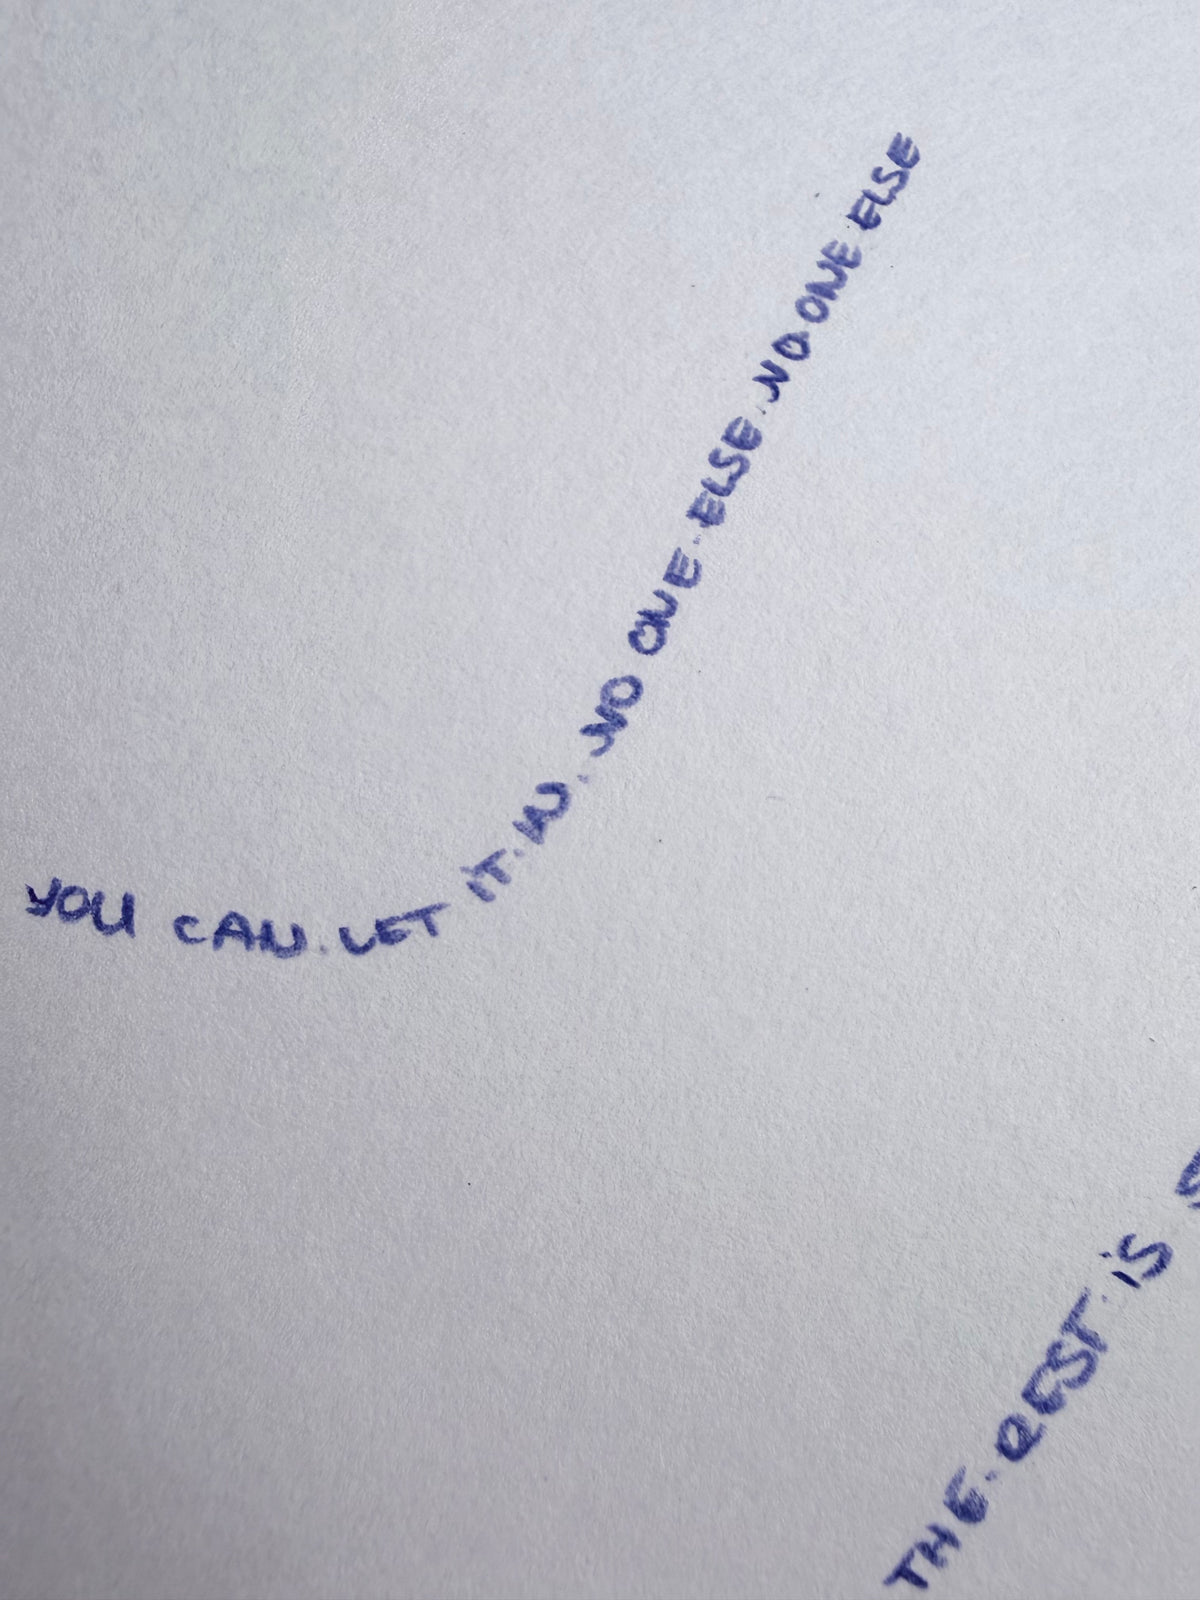 YOU CAN. LET IT. IN. NO ONE ELSE. NO ONE ELSE
THE. REST. IS